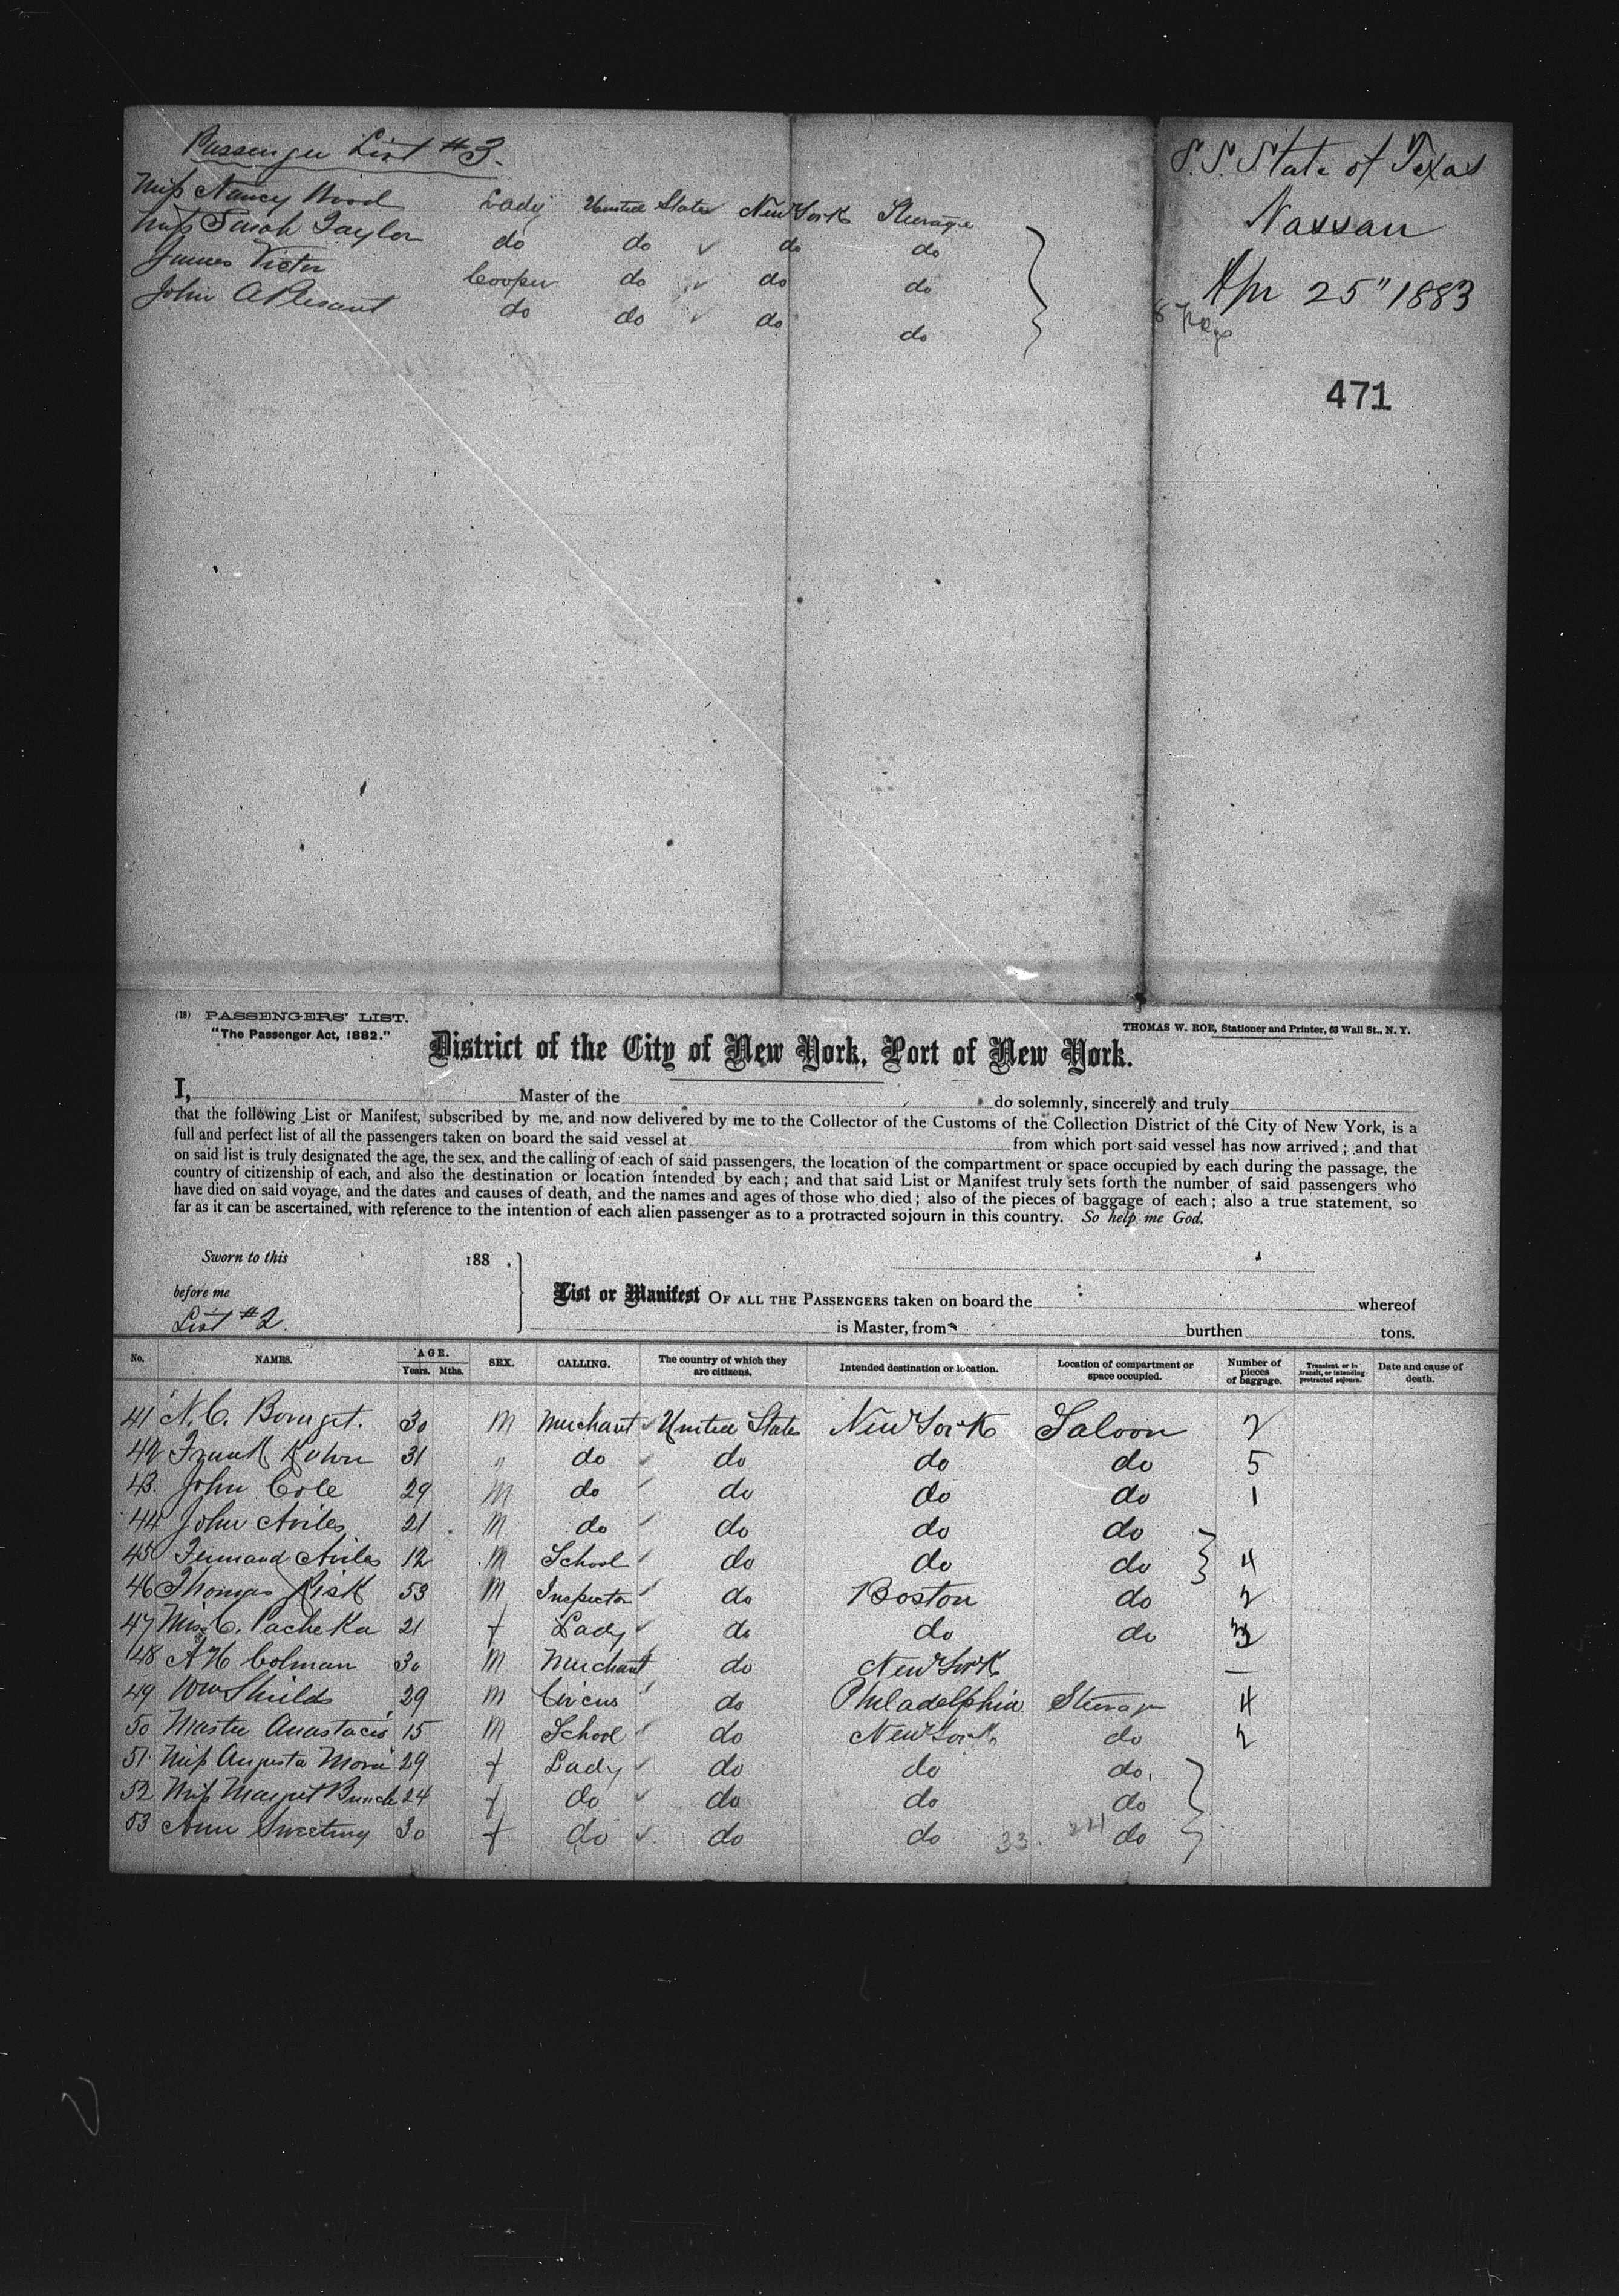 Passenger List #3.
Miss Nancy Wood Lady United States New York Steerage
Miss Sarah Taylor do do do do
James Victor Cooper do do do
John A Plesant do do do do
S.S. State of Texas
Nassau
Apr 25" 1883
471
(18) PASSENGERS' LIST.
"The Passenger Act, 1882."
THOMAS W. ROE, Stationer and Printer, 63 Wall St., N. Y.
District of the City of New York, Port of New York.
I, Master of the do solemnly, sincerely and truly
that the following List or Manifest, subscribed by me, and now delivered by me to the Collector of the Customs of the Collection District of the City of New York, is a
full and perfect list of all the passengers taken on board the said vessel at from which port said vessel has now arrived; and that
on said list is truly designated the age, the sex, and the calling of each of said passengers, the location of the compartment or space occupied by each during the passage, the
country of citizenship of each, and also the destination or location intended by each; and that said List or Manifest truly sets forth the number of said passengers who
have died on said voyage, and the dates and causes of death, and the names and ages of those who died; also of the pieces of baggage of each; also a true statement, so
far as it can be ascertained, with reference to the intention of each alien passenger as to a protracted sojourn in this country. So help me God.
Sworn to this 188 .
before me
List #2.
List or Manifest OF ALL THE PASSENGERS taken on board the whereof
is Master, from burthen tons.
No. NAMES. AGE. Years. Mths. SEX. CALLING. The country of which they are citizens. Intended destination or location. Location of compartment or space occupied. Number of pieces of baggage. Transient, or in transit, or intending protracted sojourn. Date and cause of death.
41 N. C. 30 M Merchant United States New York Saloon 2
42 Frank Kohn 31 " do do do do 5
43. John Cole 29 M do do do do 1
44 John Aviles 21 M do do do do
45 Fernand Aviles 12 M School do do do 4
46 Thomas Risk 53 M Inspector do Boston do 2
47 C. Pacheka 21 f Lady do do do 3
48 A H Colman 30 M Merchant do New York —
49 Wm Shields 29 M Circus do Philadelphia Steerage 4
50 Master Anastacio 15 M School do New York do 2
51. Miss Augusta 29 f Lady do do do.
52 Miss Margret Bunch 24 f do do do do
53 Ann Sweeting 30 f do do do 33. 221 do